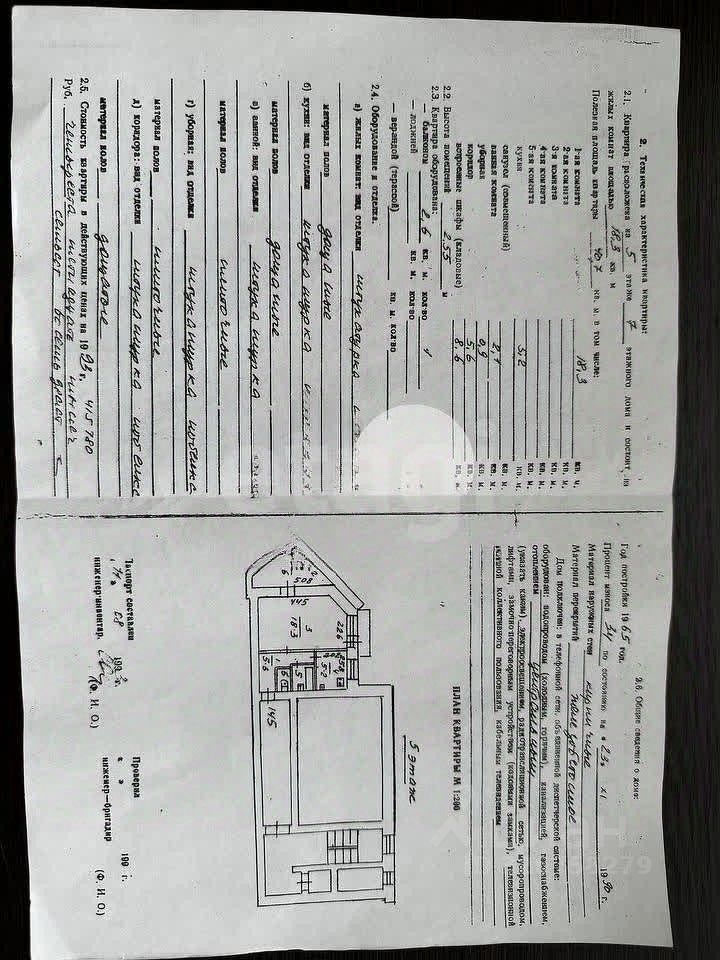 2. Техническая характеристика квартиры:
2.1. Квартира расположена на 5 этаже 7 этажного дома и состоит из
жилых комнат площадью 18,3 кв. м
Полезная площадь квартиры 40.7 кв. м. в том числе:
1-ая комната 18,3 кв. м.
2-ая комната кв. м.
3-я комната кв. м.
4-ая комната кв. м.
5-ая комната кв. м.
кухня 5,2 кв. м.
санузел (совмещенный) кв. м.
ванная комната 2,1 кв. м.
уборная 0,9 кв. м.
коридор 5,6 кв. м.
встроенные шкафы (кладовые) 8,6 кв. м.
2.2. Высота помещений 2,55 м
2.3. Квартира оборудована:
— балконом 2,6 кв. м. кол-во 1
— лоджией кв. м. кол-во
— верандой (терассой) кв. м. кол-во
2.4. Оборудование и отделка.
а) жилых комнат: вид отделки штукатурка
материал полов дощатые
б) кухни: вид отделки штукатурка
материал полов дощатые
в) ванной: вид отделки штукатурка
материал полов плиточные
г) уборная: вид отделки штукатурка побелка
материал полов плиточные
д) коридора: вид отделки штукатурка побелка
материал полов дощатые
2.5. Стоимость квартиры в действующих ценах на 1993 г. 415780
Руб. четыреста пятнадцать тысяч
семьсот восемьдесят
2.6. Общие сведения о доме:
Год постройки 1965 год.
Процент износа 34 по состоянию на «23» XI 1990 г.
Материал наружных стен кирпичные
Материал перекрытий железобетонное
Дом подключен: к телефонной сети, объединенной диспетчерской системе:
оборудован: водопроводом (холодным, горячим), канализацией, газоснабжением,
отоплением центральным
(указать каким), электроосвещением, радиотрансляционной сетью, мусоропроводом,
лифтами, замочно-переговорным устройством (кодовыми замками), телевизионной
антенной коллективного пользования, кабельным телевидением
ПЛАН КВАРТИРЫ М 1:200
5 этаж
6
2
508
445
3
18.3
226
202
254
5.2
5.6
1
5
145
Паспорт составлен
08 199 г.
инженер-инвентар.
(Ф. И. О.)
Проверил
« » 199 г.
инженер-бригадир
(Ф. И. О.)